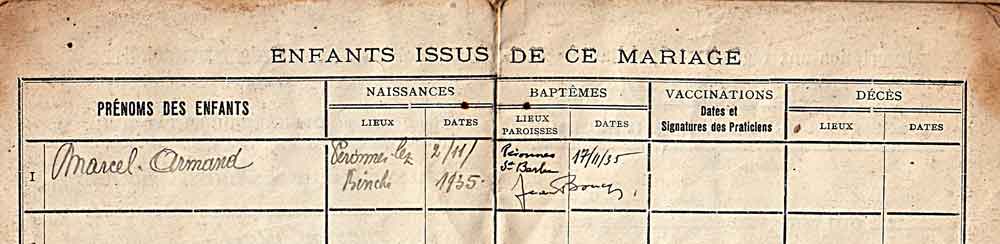 ENFANTS ISSUS DE CE MARIAGE
PRÉNOMS DES ENFANTS
NAISSANCES
LIEUX
DATES
BAPTÊMES
LIEUX
PAROISSES
DATES
VACCINATIONS
Dates et
Signatures des Praticiens
DÉCÈS
LIEUX
DATES
1
Marcel-Armand
Péronnes-lez
Binche
2/11/
1935
Péronnes
Ste Barbe
17/11/35
Jean